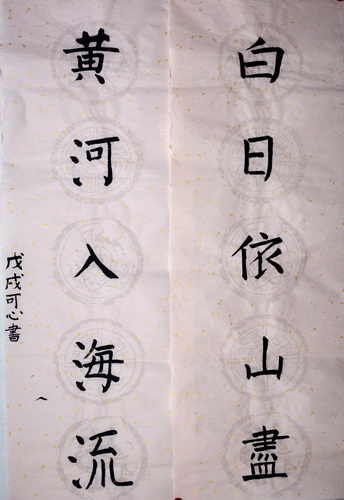 白日依山盡
黄河入海流
戊戌可心書